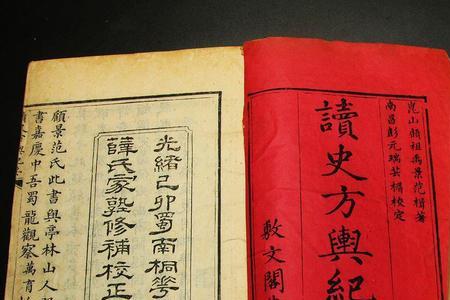 崑山顧祖禹景范輯著
南昌彭元瑞芸楣校定
讀史方輿紀
敷文閣
光緒己卯蜀南桐華
薛氏家塾修補校正
顧景范氏此書與亭林山人
書嘉慶中吾蜀龍觀察萬育